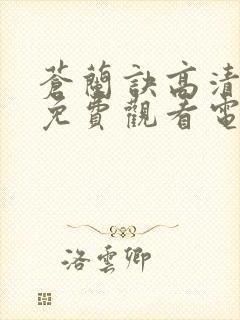 蒼蘭訣高清
免費觀看電
洛雲卿